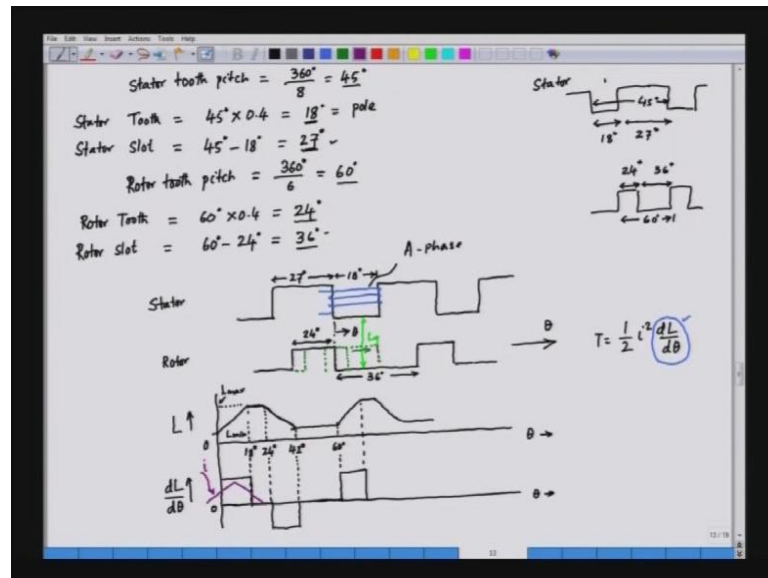 File Edit View Insert Actions Tools Help
Stator tooth pitch = 360°/8 = 45°
Stator Tooth = 45° × 0.4 = 18° = pole
Stator Slot = 45° - 18° = 27°
Rotor tooth pitch = 360°/6 = 60°
Rotor Tooth = 60° × 0.4 = 24°
Rotor slot = 60° - 24° = 36°
Stator
45°
18° 27°
24° 36°
60°
A-phase
27° 18°
Stator
θ
24°
Rotor
36°
θ
T = 1/2 i² dL/dθ
Lmax
L
Lmin
0
18° 24° 42° 60°
θ
i
dL/dθ
0
θ
13
13/18